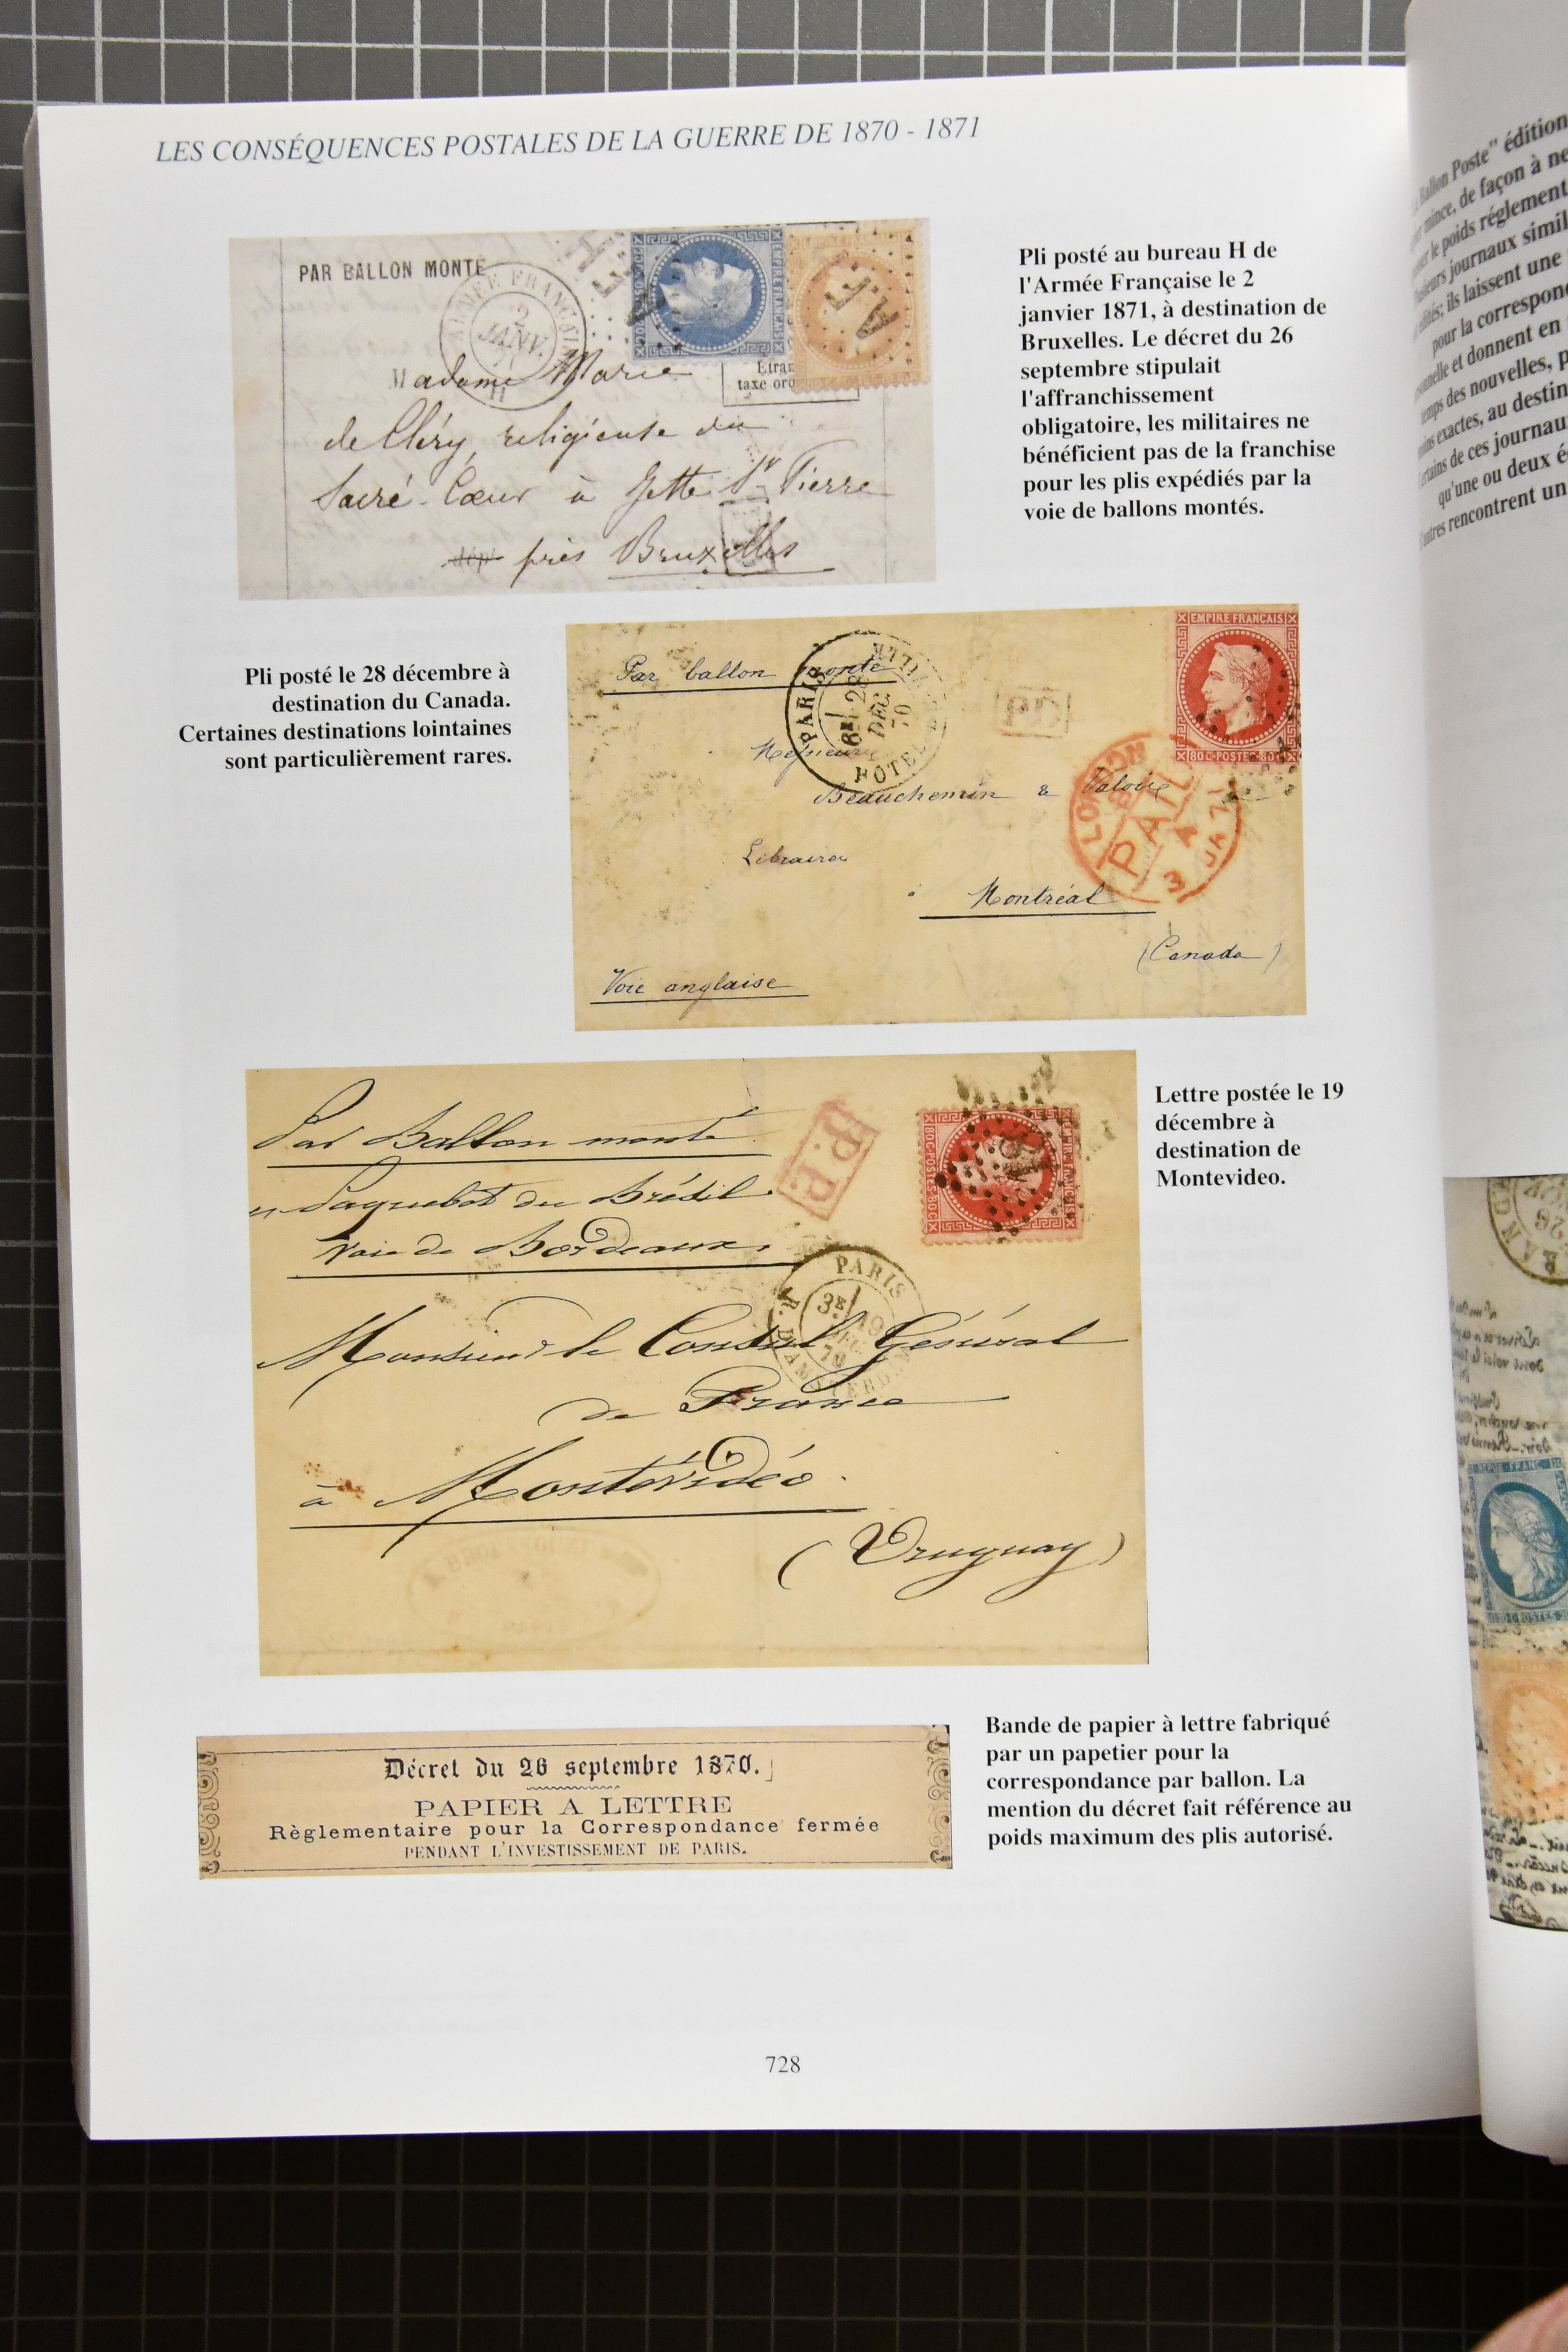 LES CONSÉQUENCES POSTALES DE LA GUERRE DE 1870 - 1871
PAR BALLON MONTÉ
ARMÉE FRANÇAISE
2
JANV.
H
Etran
taxe oro
Madame Marie
de Cléry, religieuse du
Sacré-Cœur à Jette St Pierre
près Bruxelles
Pli posté au bureau H de
l'Armée Française le 2
janvier 1871, à destination de
Bruxelles. Le décret du 26
septembre stipulait
l'affranchissement
obligatoire, les militaires ne
bénéficient pas de la franchise
pour les plis expédiés par la
voie de ballons montés.
Pli posté le 28 décembre à
destination du Canada.
Certaines destinations lointaines
sont particulièrement rares.
Par ballon monté
PARIS
6E/ 28
DEC
70
EMPIRE FRANÇAIS
80 C·POSTES·80 C
PD
LONDON
PAID
A
3 JA 71
Messieurs
Beauchemin & Valois
Libraires
à Montréal
(Canada)
Voie anglaise
Par Ballon monté
Paquebot du Brésil
Voie de Bordeaux.
P.P.
80C·POSTES·80C
PARIS
3E/ 19
DEC
70
Monsieur le Consul Général
de France
à Montévidéo.
(Uruguay)
Lettre postée le 19
décembre à
destination de
Montevideo.
Décret du 26 septembre 1870.
PAPIER A LETTRE
Règlementaire pour la Correspondance fermée
PENDANT L'INVESTISSEMENT DE PARIS.
Bande de papier à lettre fabriqué
par un papetier pour la
correspondance par ballon. La
mention du décret fait référence au
poids maximum des plis autorisé.
728
Ballon Poste" édition
mince, de façon à ne
le poids réglement
journaux simil
ils laissent une
pour la correspon
et donnent en
des nouvelles, p
exactes, au destin
de ces journau
qu'une ou deux é
rencontrent un